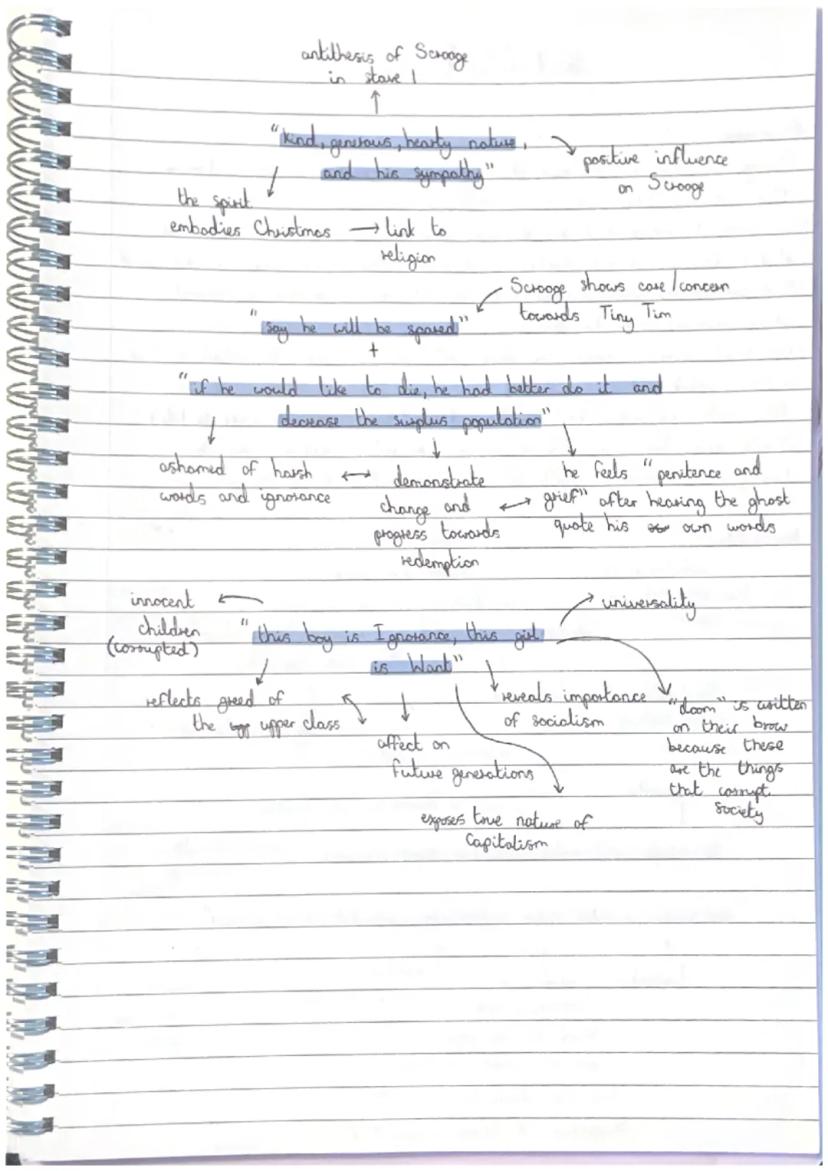 antithesis of Scrooge
in stave 1
"kind, generous, hearty nature,
and his sympathy"
positive influence
on Scrooge
the spirit
embodies Christmas → link to
religion
Scrooge shows care/concern
towards Tiny Tim
"say he will be spared"
+
"if he would like to die, he had better do it and
decrease the surplus population"
ashamed of harsh
words and ignorance
demonstrate
change and
progress towards
redemption
he feels "penitence and
grief" after hearing the ghost
quote his own words
innocent
children
(corrupted)
universality
"this boy is Ignorance, this girl
is Want"
reflects greed of
the upper class
affect on
future generations
reveals importance
of socialism
"doom" is written
on their brow
because these
are the things
that corrupt
society
exposes true nature of
Capitalism